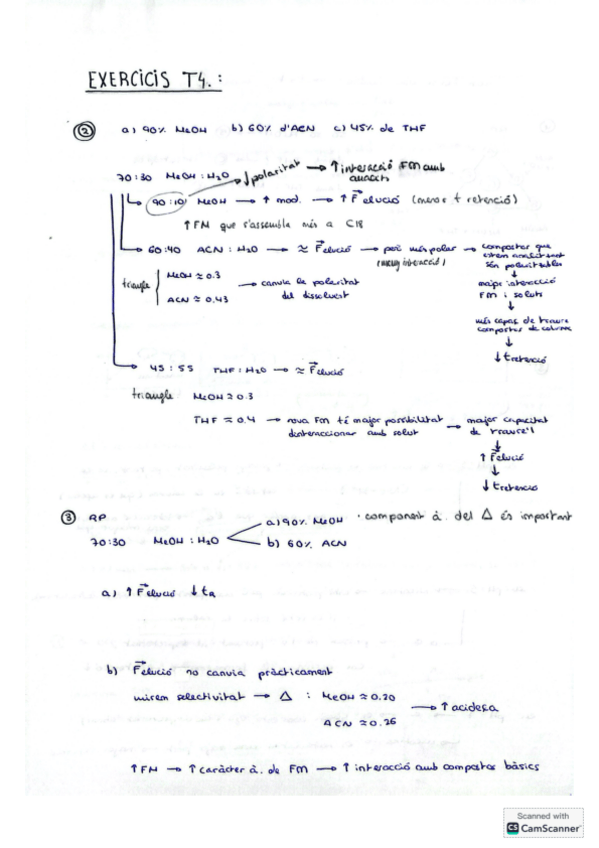 EXERCICIS T4.:
② a) 90% MeOH b) 60% d'ACN c) 45% de THF
70:30 MeOH:H2O ↓polaritat → ↑interacció FM amb
90:10 MeOH → ↑ mod. → ↑ F elució (menor t retenció)
↑FM que s'assembla més a C18
60:40 ACN:H2O → ≈ F elució → però més polar → compostos que
són polaritzables
triangle MeOH ≈ 0.3
ACN ≈ 0.43 → canvia la polaritat
del dissolvent
major interacció
FM i soluts
↓
més capaç de treure
compostos de columna
↓
↓ t retenció
45:55 THF:H2O → ≈ F elució
triangle MeOH ≈ 0.3
THF ≈ 0.4 → nova FM té major possibilitat → major capacitat
d'interaccionar amb solut de treure'l
↓
↑ F elució
↓
↓ t retenció
③ RP
70:30 MeOH:H2O a) 90% MeOH · component à. del Δ és important
b) 60% ACN
a) ↑ F elució ↓ tR
b) F elució no canvia pràcticament
mirem selectivitat → Δ : MeOH ≈ 0.20
ACN ≈ 0.26 → ↑ acidesa
↑ FM → ↑ caràcter à. de FM → ↑ interacció amb compostos bàsics
Scanned with
CS CamScanner